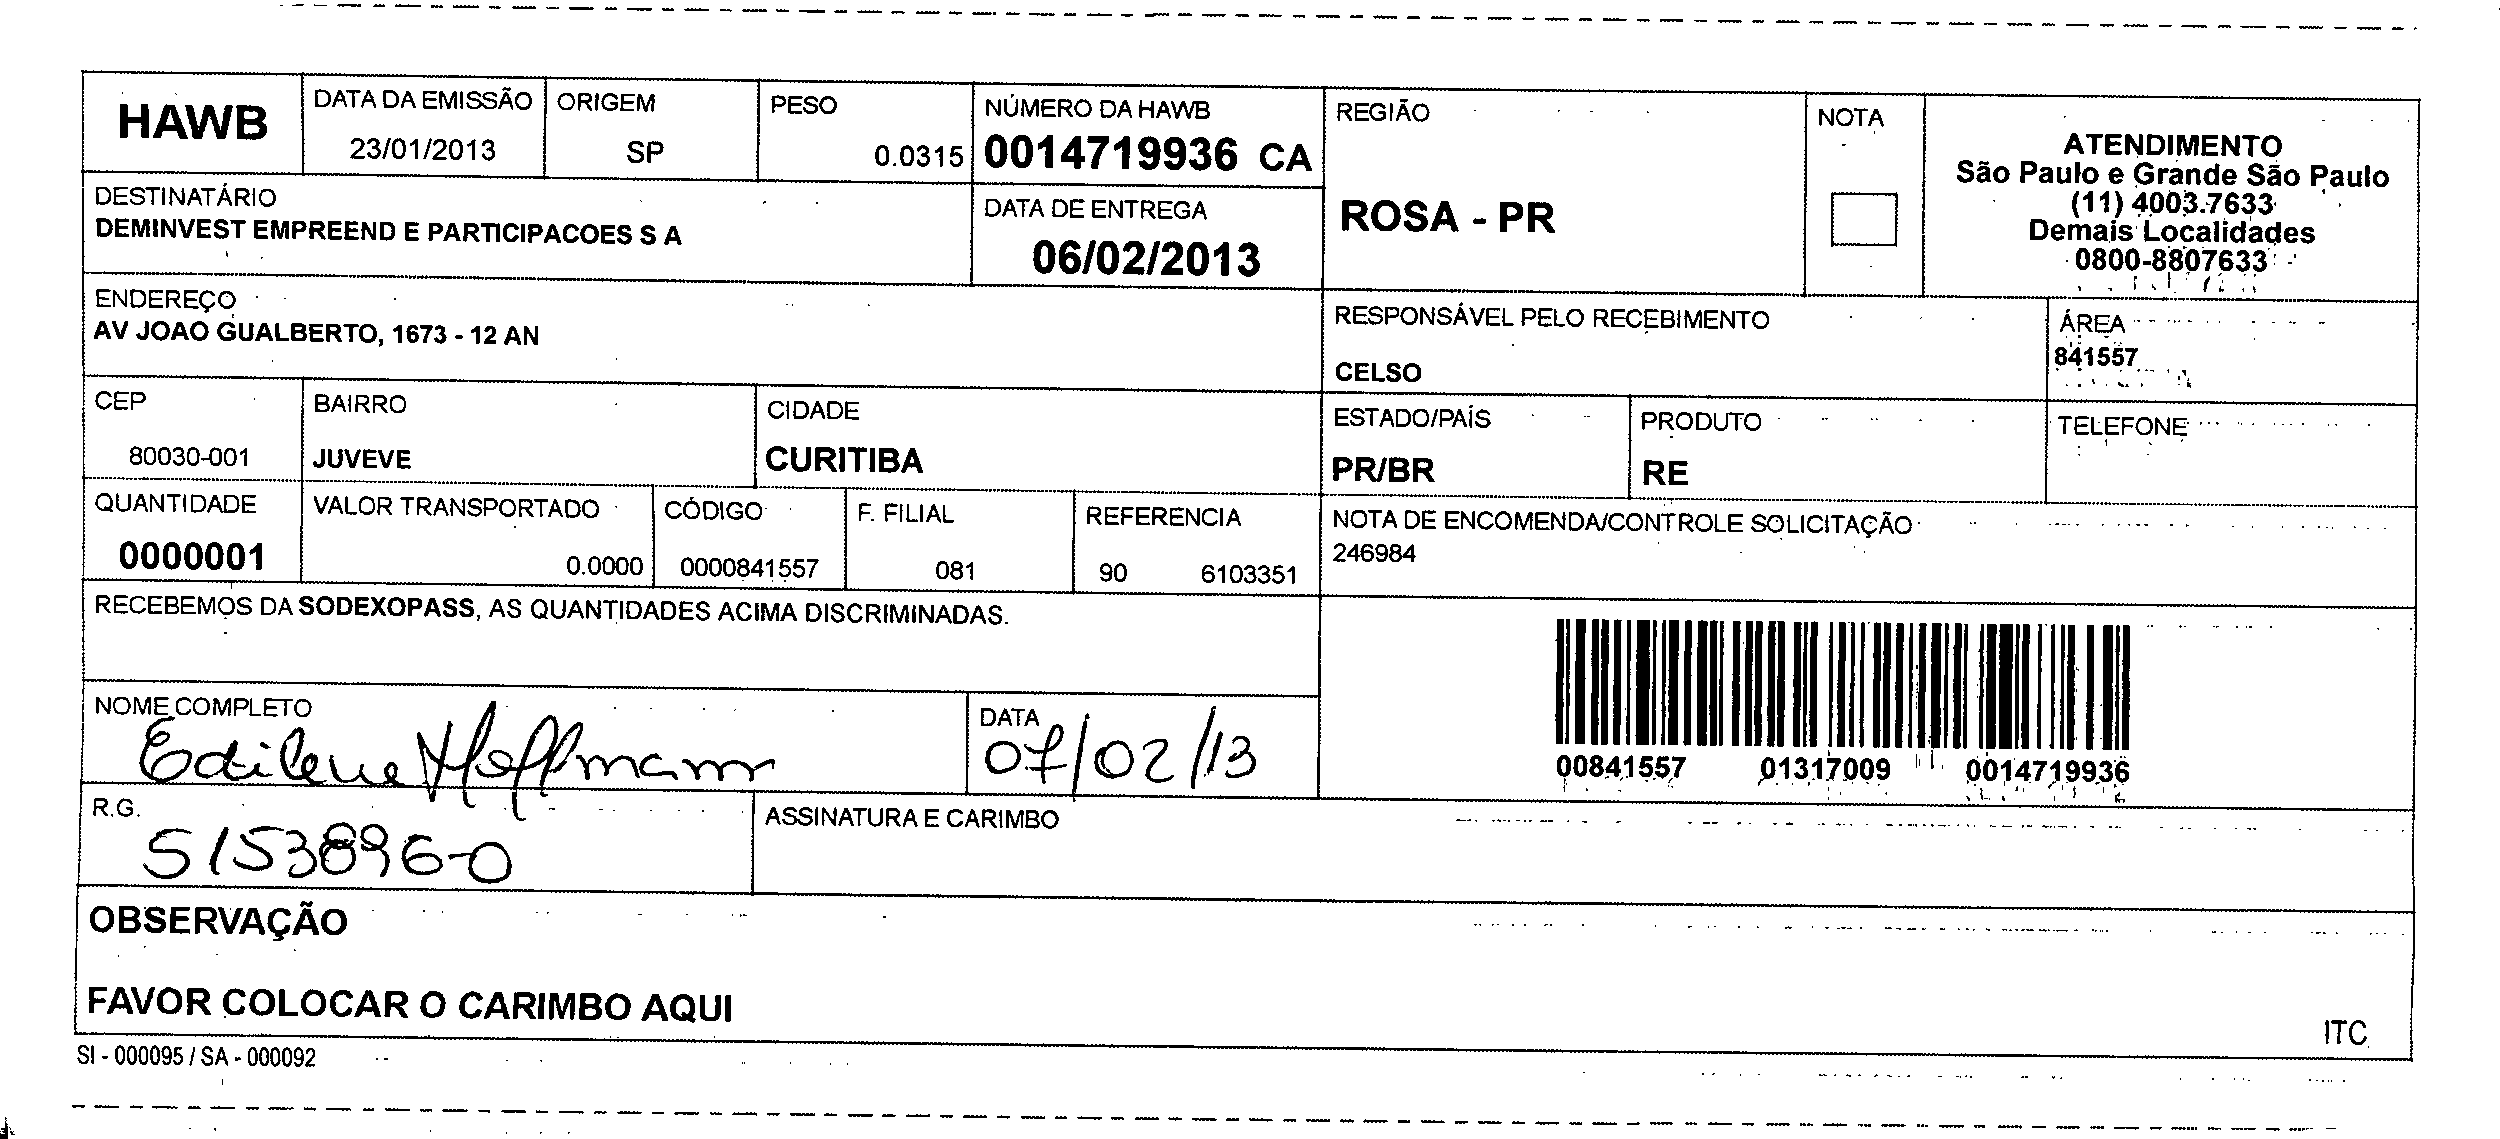 HAWB
DATA DA EMISSÃO
23/01/2013
ORIGEM
SP
PESO
0.0315
NÚMERO DA HAWB
0014719936 CA
REGIÃO
ROSA - PR
NOTA
ATENDIMENTO
São Paulo e Grande São Paulo
(11) 4003.7633
Demais Localidades
0800-8807633
DESTINATÁRIO
DEMINVEST EMPREEND E PARTICIPACOES S A
DATA DE ENTREGA
06/02/2013
ENDEREÇO
AV JOAO GUALBERTO, 1673 - 12 AN
RESPONSÁVEL PELO RECEBIMENTO
CELSO
ÁREA
841557
CEP
80030-001
BAIRRO
JUVEVE
CIDADE
CURITIBA
ESTADO/PAÍS
PR/BR
PRODUTO
RE
TELEFONE
QUANTIDADE
0000001
VALOR TRANSPORTADO
0.0000
CÓDIGO
0000841557
F. FILIAL
081
REFERENCIA
90 6103351
NOTA DE ENCOMENDA/CONTROLE SOLICITAÇÃO
246984
RECEBEMOS DA SODEXOPASS, AS QUANTIDADES ACIMA DISCRIMINADAS.
00841557 01317009 0014719936
NOME COMPLETO
Edilene Hoffmann
DATA
07/02/13
R.G.
5153896-0
ASSINATURA E CARIMBO
OBSERVAÇÃO
FAVOR COLOCAR O CARIMBO AQUI
ITC
SI - 000095 / SA - 000092